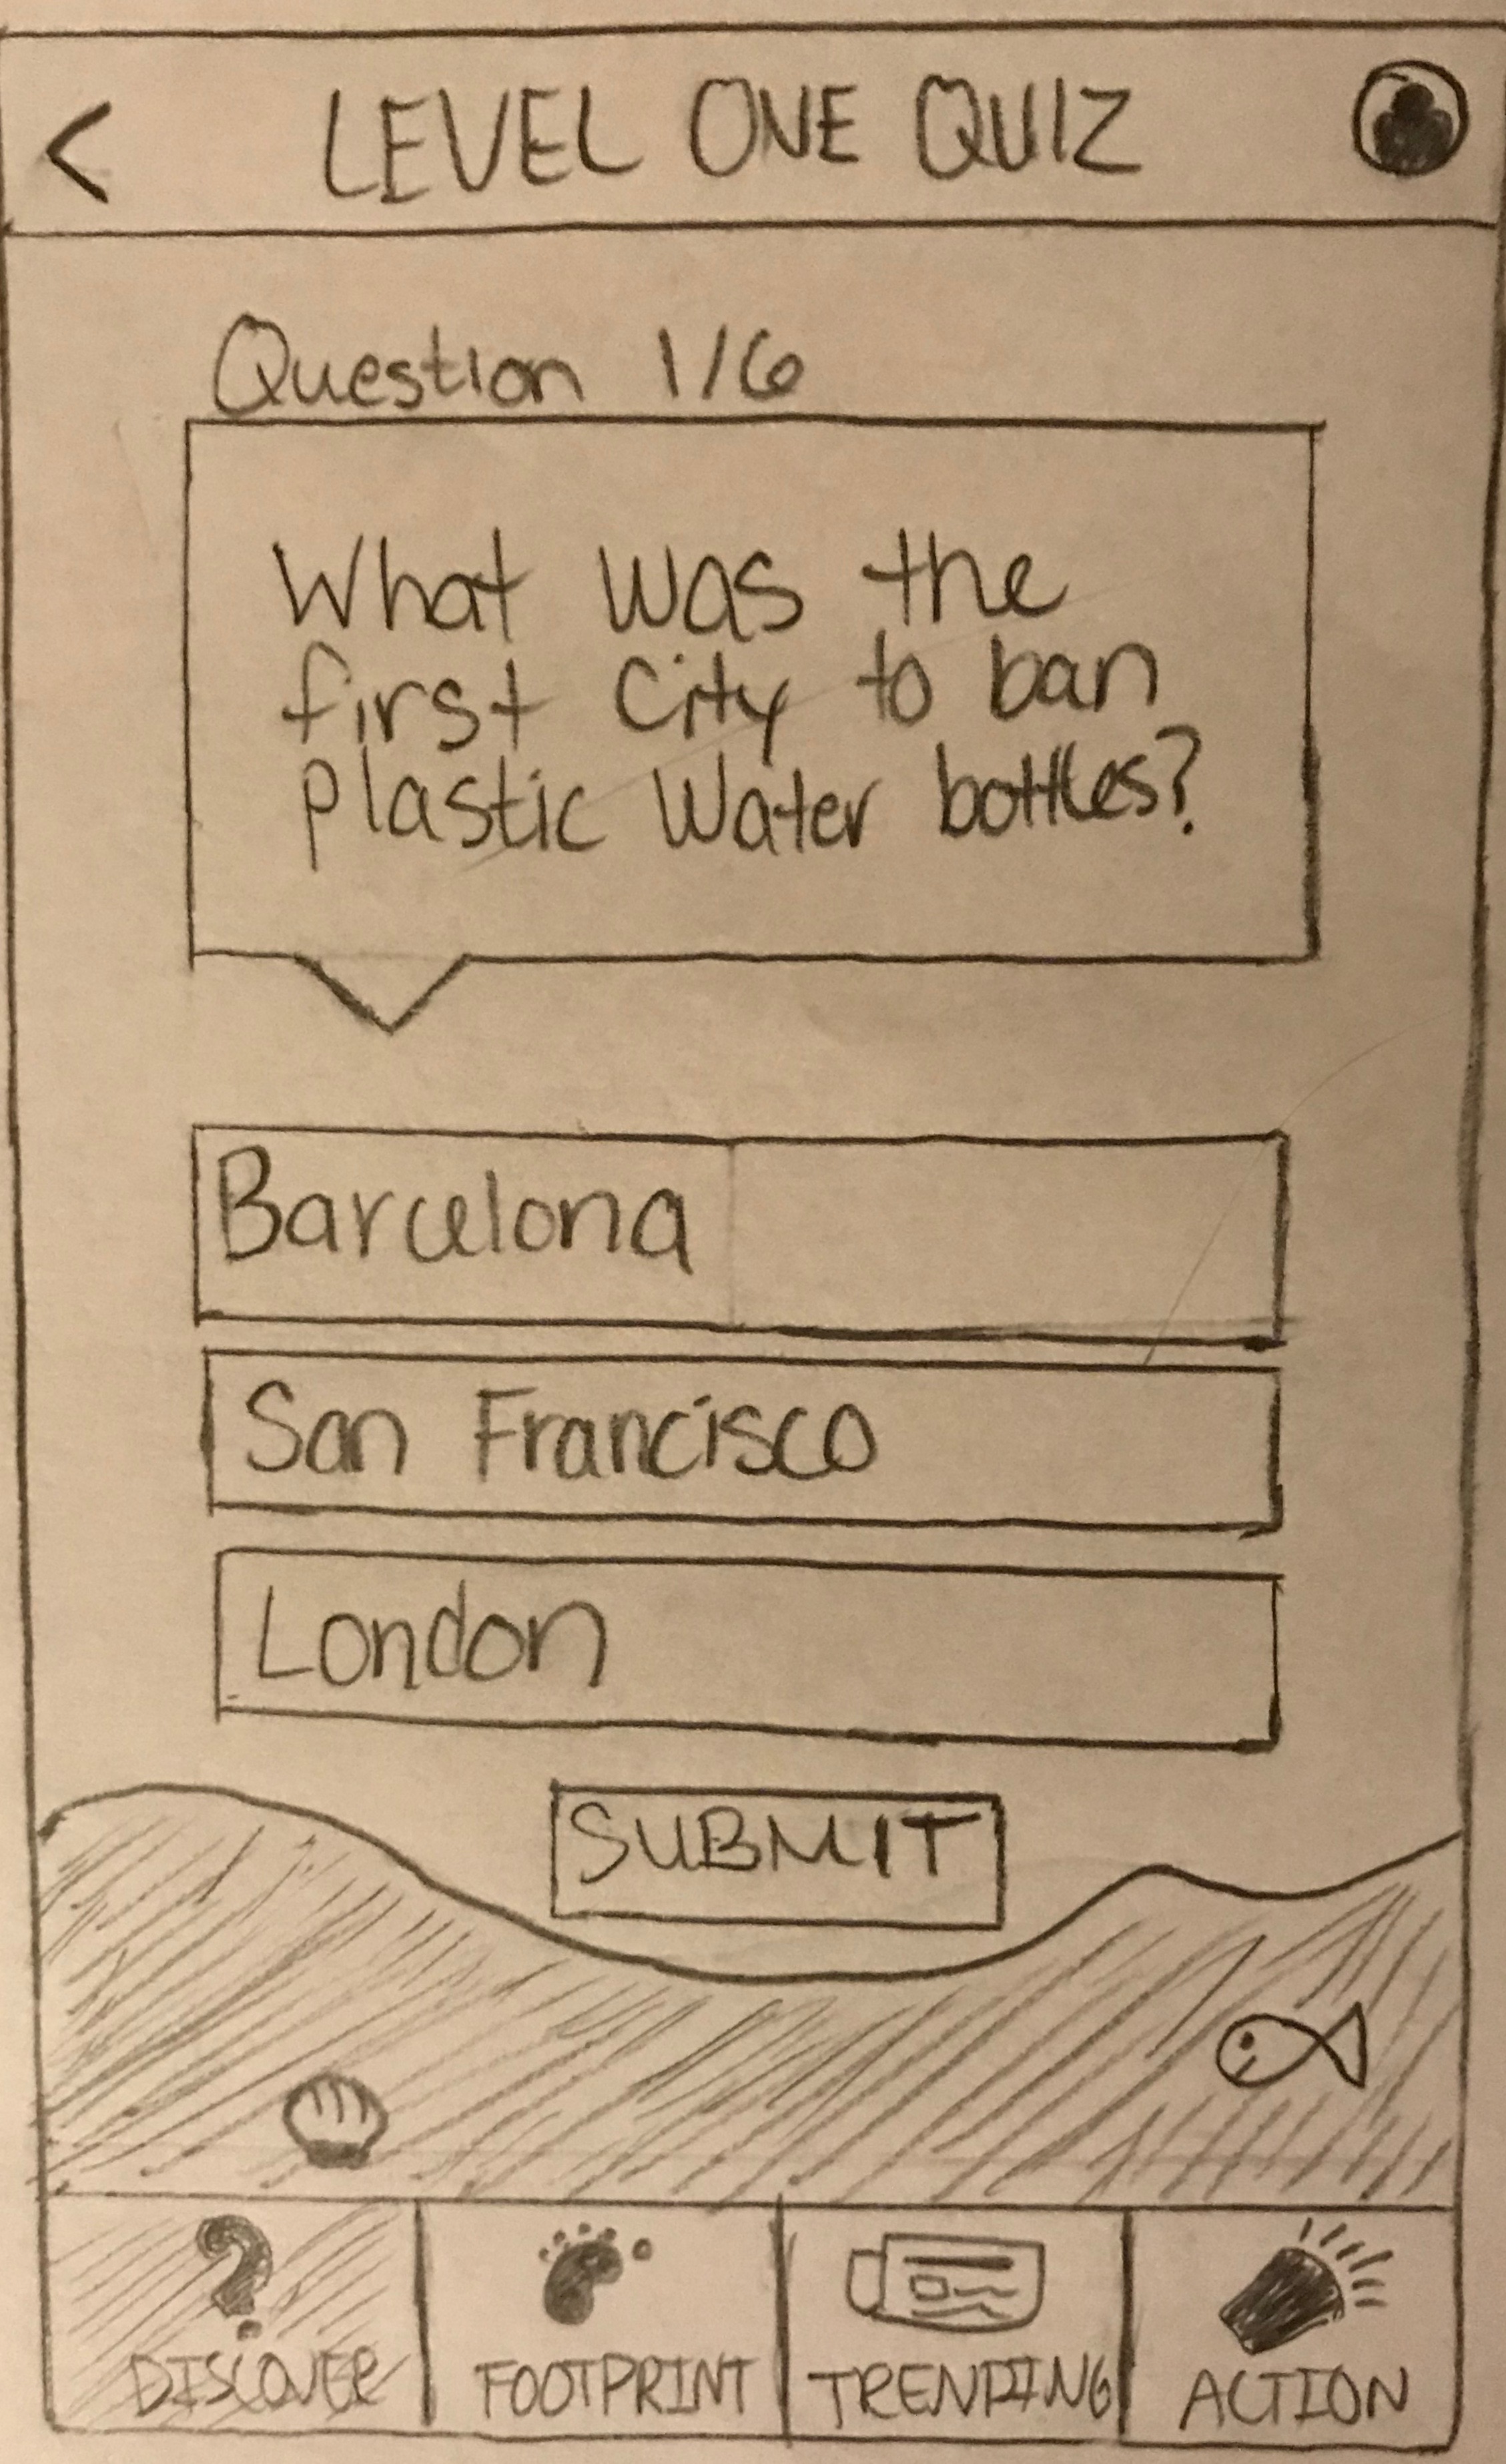 < LEVEL ONE QUIZ
Question 1/6
What was the
first City to ban
plastic Water bottles?
Barcelona
San Francisco
London
SUBMIT
?
DISCOVER FOOTPRINT TRENDING ACTION